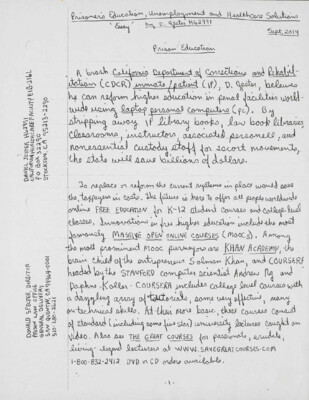 Prisoner's Education, Unemployment and Healthcare Solutions
Essay by D. Jester H62971
Sept, 2014
Prison Education
A brash California Department of Corrections and Rehabil-
itation (CDCR) inmate/patient (IP), D. Jester, believes
he can reform higher education in penal facilities world-
wide using laptop personal computers (PC). By
stripping away IP library books, law book libraries
classrooms, instructors, associated personnel, and
nonessential custody staff for escort movements,
the state will save billions of dollars.
To replace or reform the current systems in place would save
the taxpayers in costs. The future is here to offer all people worldwide
online FREE EDUCATION for K-12 student courses and college level
classes. Innovations in free higher education includes the most
MASSIVE OPEN ONLINE COURSES (MOOCs). Among
the most prominent MOOC purveyors are KHAN ACADEMY, the
brain child of the entrepreneur Salman Khan, and COURSERA
headed by the STANFORD computer scientist Andrew Ng and
Daphne Koller. COURSERA includes college level courses with
a dazzling array of tutorials, some very effective, many
on technical skills. At their more basic, these courses consist
of standard (including some five star) university lectures caught on
video. Also see THE GREAT COURSES for personals, erudite,
living-legend lecturers at WWW.SAVEGREATCOURSES.COM
1-800-832-2412 DVD or CD orders available.
-1-
DANIEL JESTER H62971
P.O. BOX 32290
STOCKTON, CA 95213-2290
DONALD SPECTER
PRISON LAW OFFICE
GENERAL DELIVERY
SAN QUENTIN, CA 94964-0001